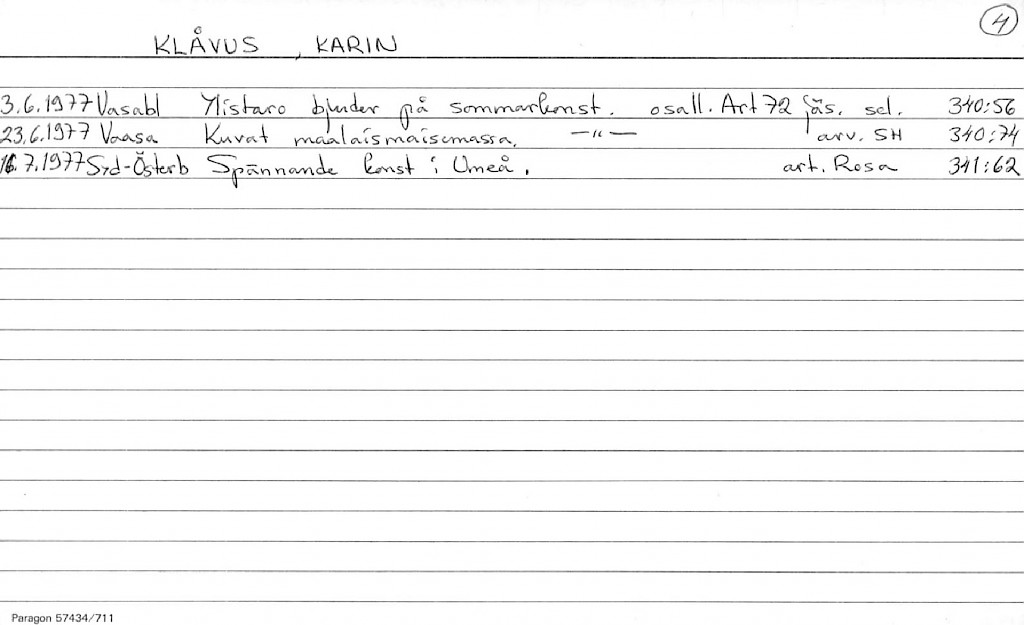 4
KLÅVUS, KARIN
3.6.1977 Vasabl Ylistaro bjuder på sommarkonst. osall. Art 72 jäs. sel. 340:56
23.6.1977 Vaasa Kuvat maalaismaisemassa. —"— arv. SH 340:74
16.7.1977 Syd-Österb Spännande konst i Umeå. art. Rosa 341:62
Paragon 57434/711